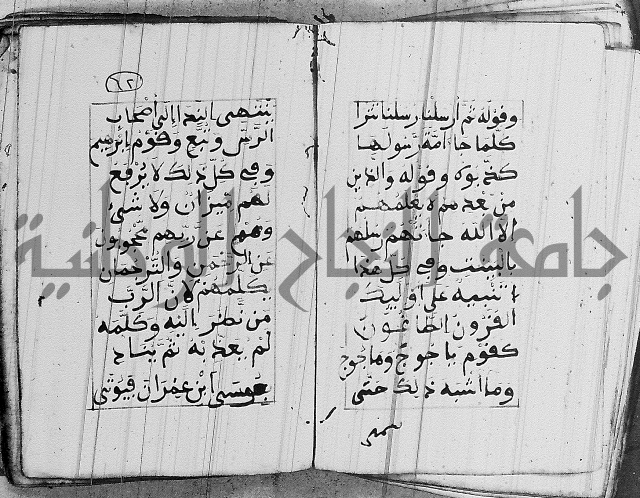 وقوله ثم ارسلنا رسلنا تترا
كلما جا امة رسولها
كذبوه وقوله والذين
من بعدهم لا يعلمهم
الا الله جاتهم رسلهم
بالبينت وفي كل هذا
تنبيه على اوليك
القرون الطاغون
كقوم ياجوج وماجوج
وما اشبه ذلك حتى
٦٢
ينتهى اليه الى أصحاب
الرس وتبع وقوم
وفي كل ذلك لا يرفع
لهم ميزان ولا شيء
وهم عن ربهم محجوبون
عن الرحمن والترحمان
يكلمهم لان الرب
من نظر اليه وكلمه
لم يعذبه ثم يناح
موسى ابن عمران فيوتى
جامعة النجاح الوطنية